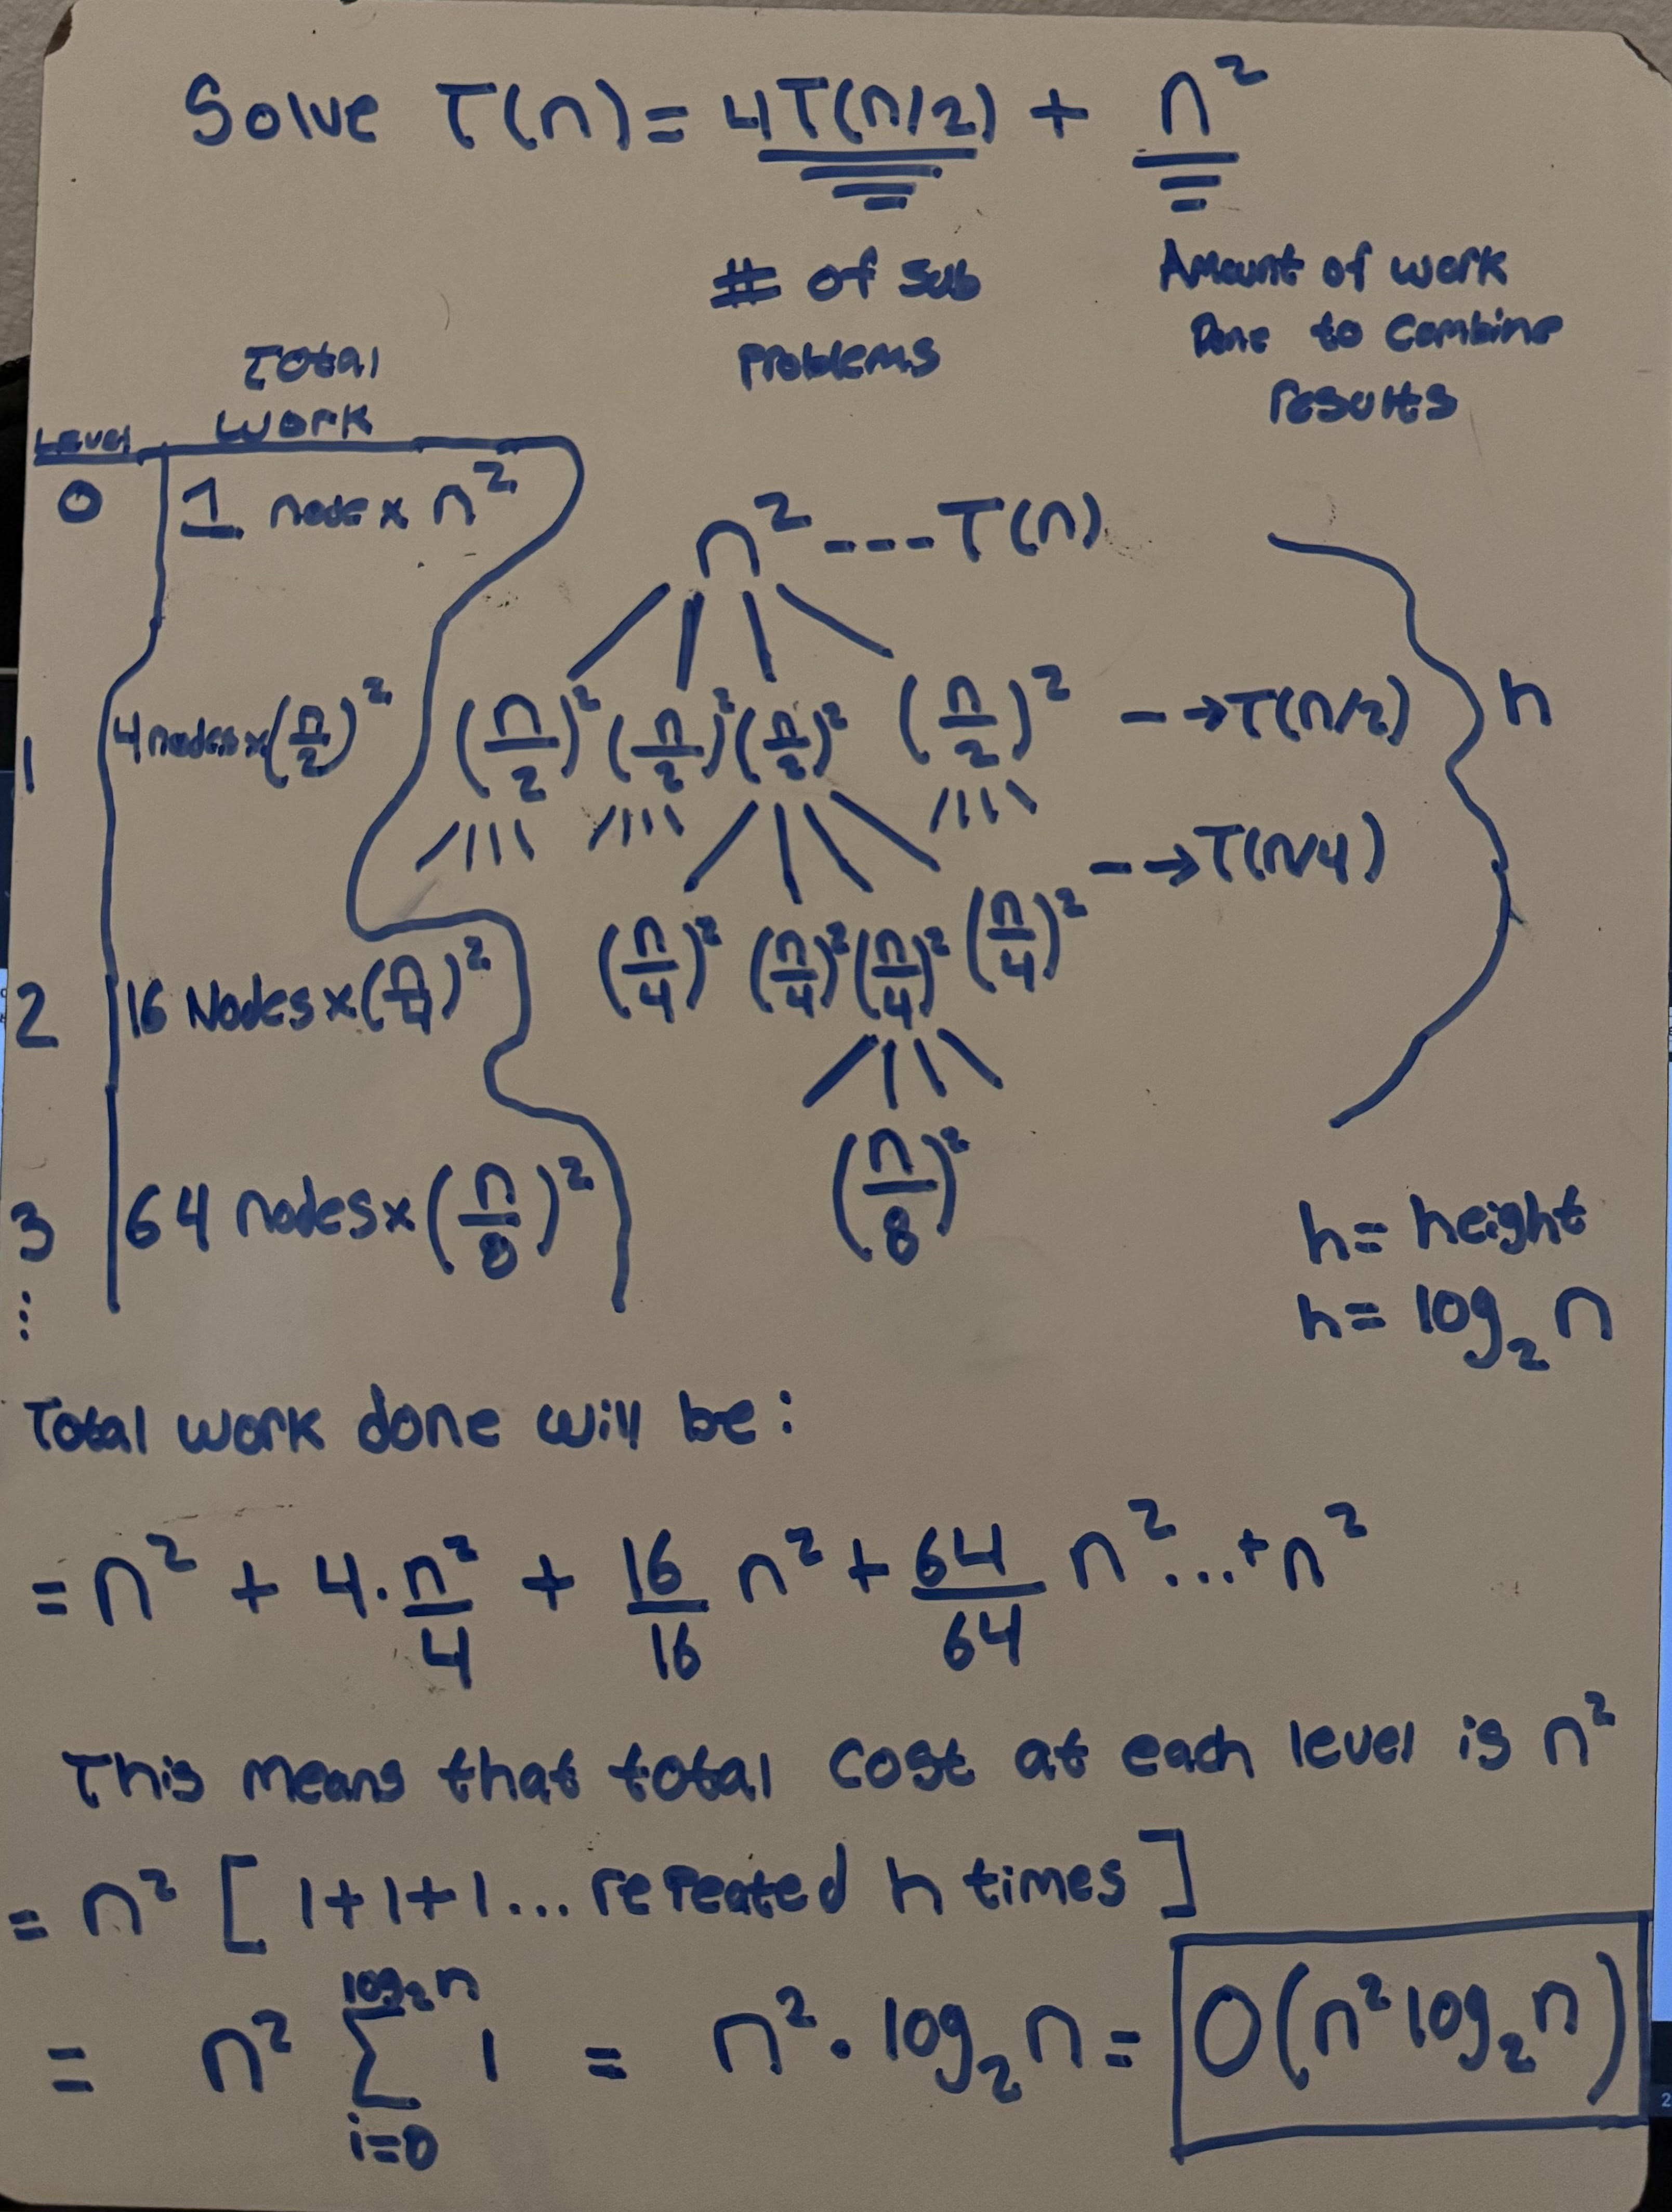 Solve T(n) = 4T(n/2) + n²
# of sub problems
Amount of work Done to Combine results
Level
Total Work
0 1 node x n²
1 4 nodes x (n/2)²
2 16 Nodes x (n/4)²
3 64 nodes x (n/8)²
⋮
n² ---- T(n)
(n/2)² (n/2)² (n/2)² (n/2)² --→ T(n/2)
(n/4)² (n/4)² (n/4)² (n/4)² --→ T(n/4)
(n/8)²
h
h = height
h = log₂ n
Total work done will be:
= n² + 4 · n²/4 + 16/16 n² + 64/64 n² ... + n²
This means that total cost at each level is n²
= n² [ 1+1+1... repeated h times ]
= n² ∑_{i=0}^{log₂n} 1 = n² · log₂ n = O(n² log₂ n)